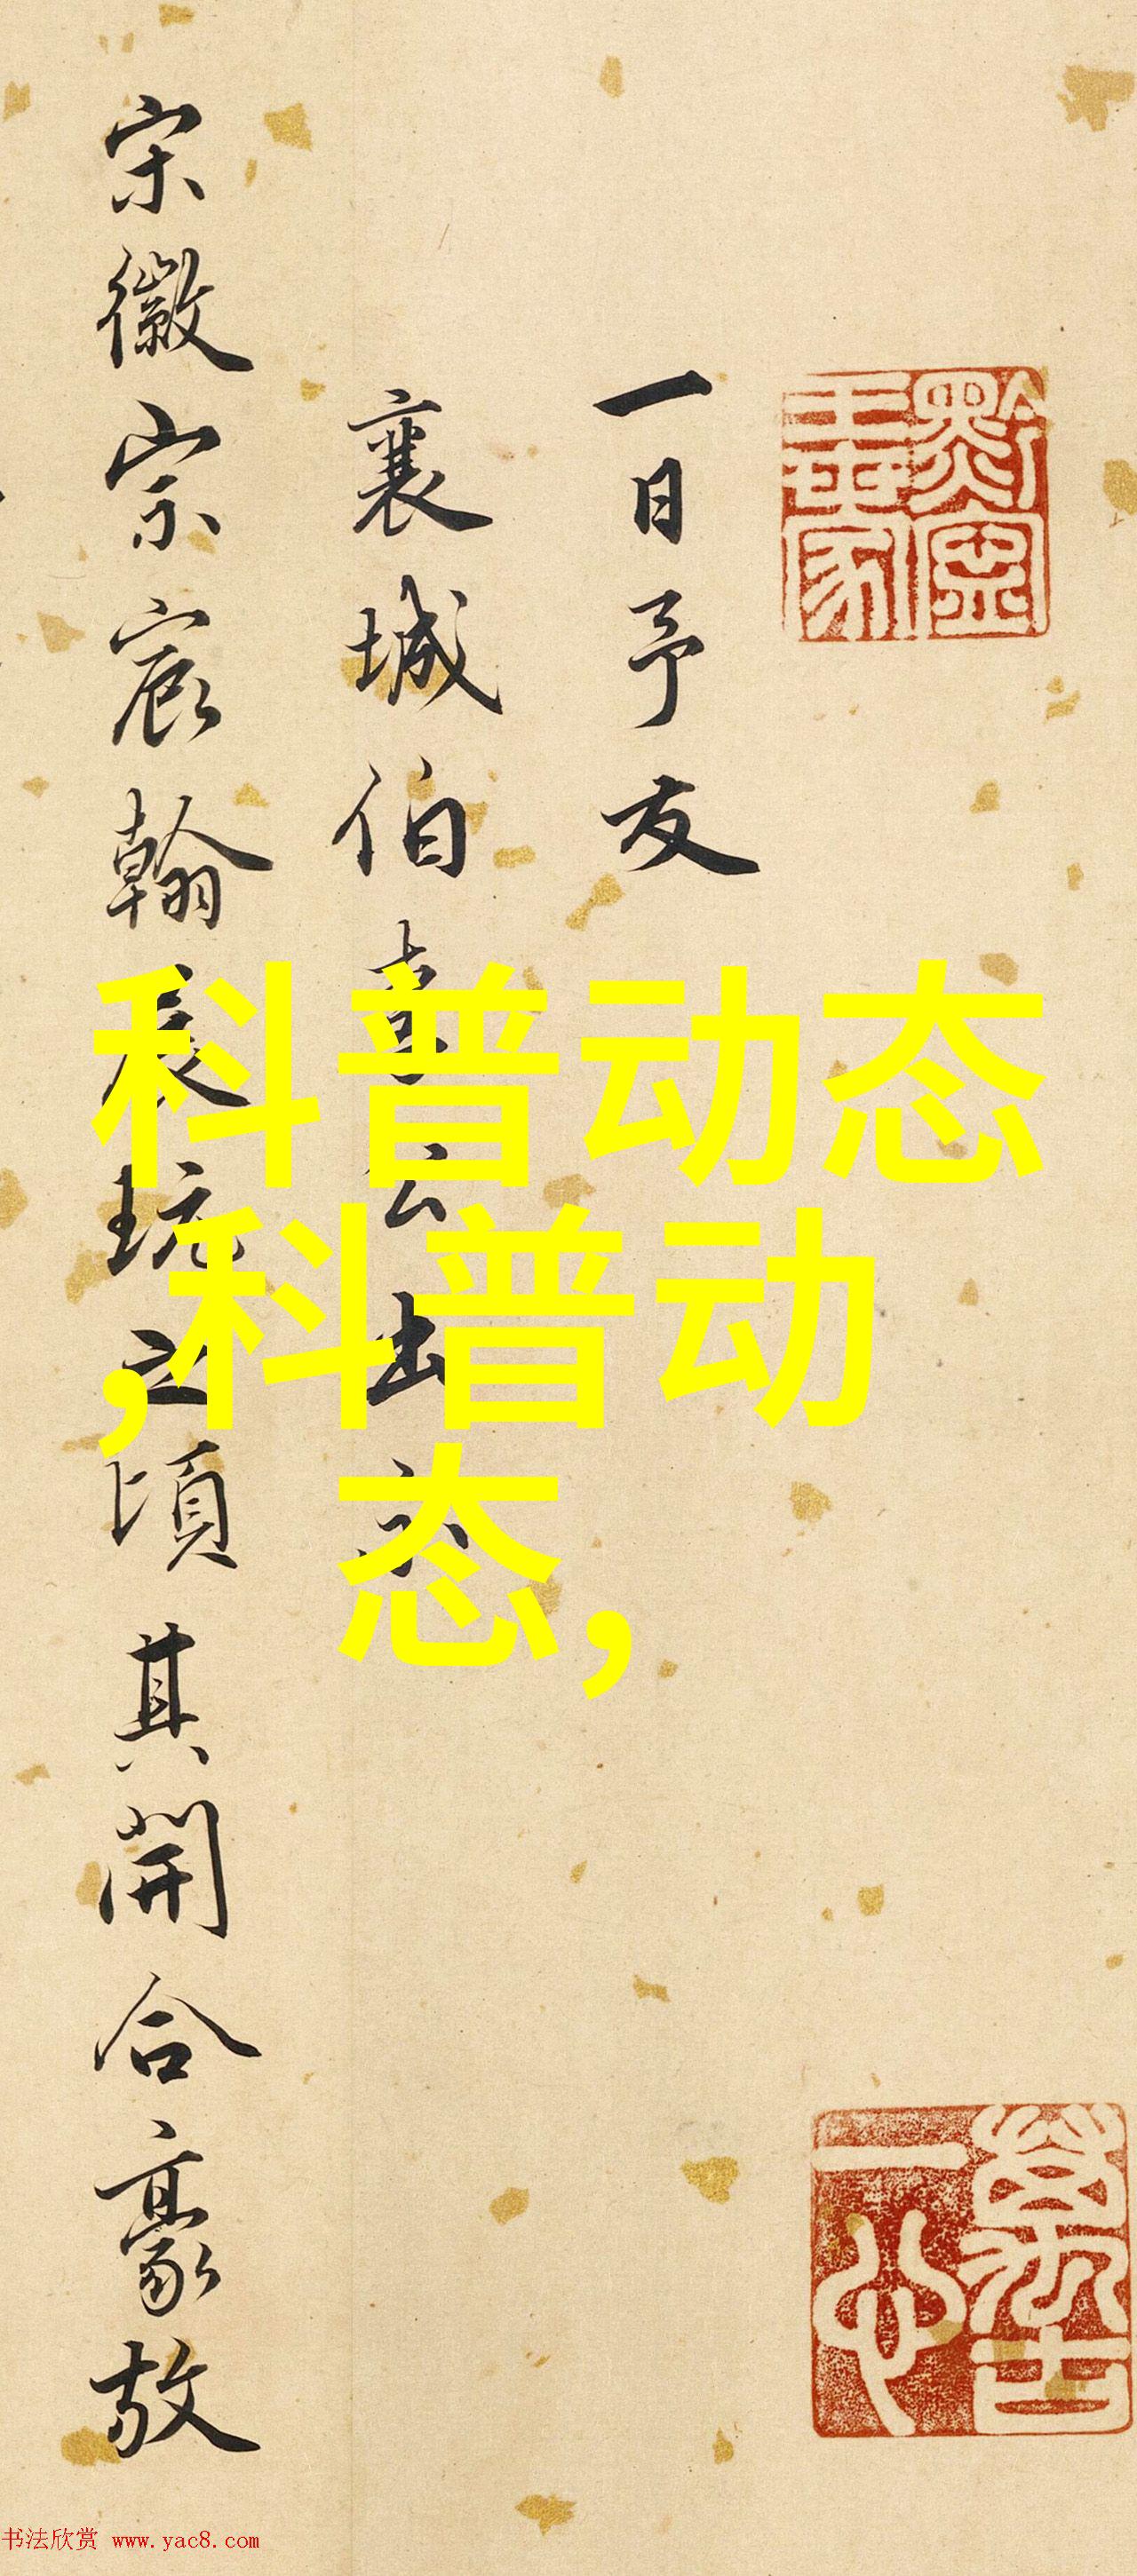 一日予友
襄城伯袁公出示
宋徽宗宸翰展玩之頃其開合豪放
科普动态
,科普动
态,
书法欣赏 www.yac8.com